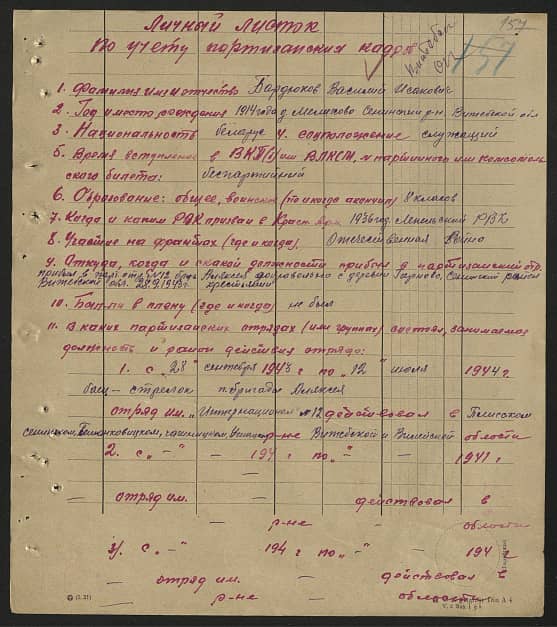 157
Личный листок
по учету партизанских кадров
157
1. Фамилия имя отчество Бардюков Василий Исакович
2. Год и место рождения 1914 года д. Мелихово Сенинский р-н. Витебской обл
3. Национальность беларус 4. соцположение служащий
5. Время вступления в ВКП(б) или ВЛКСМ, и партийного или комсомоль
ского билета: беспартийный
6. Образование: общее, военное (по и когда окончил) 8 классов
7. Когда и каким РВК призван в Красн. Арм. 1936 год. Лепельский РВК
8. Участие на фронтах (где и когда). Отечественная война
9. Откуда, когда и с какой должности прибыл в партизанский отр.
прибыл в парт. отр. №12 бриг. Алексея добровольно с деревни Сенинский район
Витебской обл. 28.9.1943 г. крестьянин
10. Был ли в плену (где и когда) не был
11. В каких партизанских отрядах (или группах) состоял, занимаемая
должность и район действия отряда:
1. с „28" сентября 1943 г по „12" июля 1944 г.
боец - стрелок п.бригады Алексея
отряд им. „Интернационал №12 действовал в
сенинском, р-не Витебской и Вилейской области
2. с „-" - 194 г по „-" - 194 г.
— отряд им. — действовал в
— р-не — области
3/. с „-" - 194 г по „-" - 194 г
— отряд им. — действовал
— р-не — области